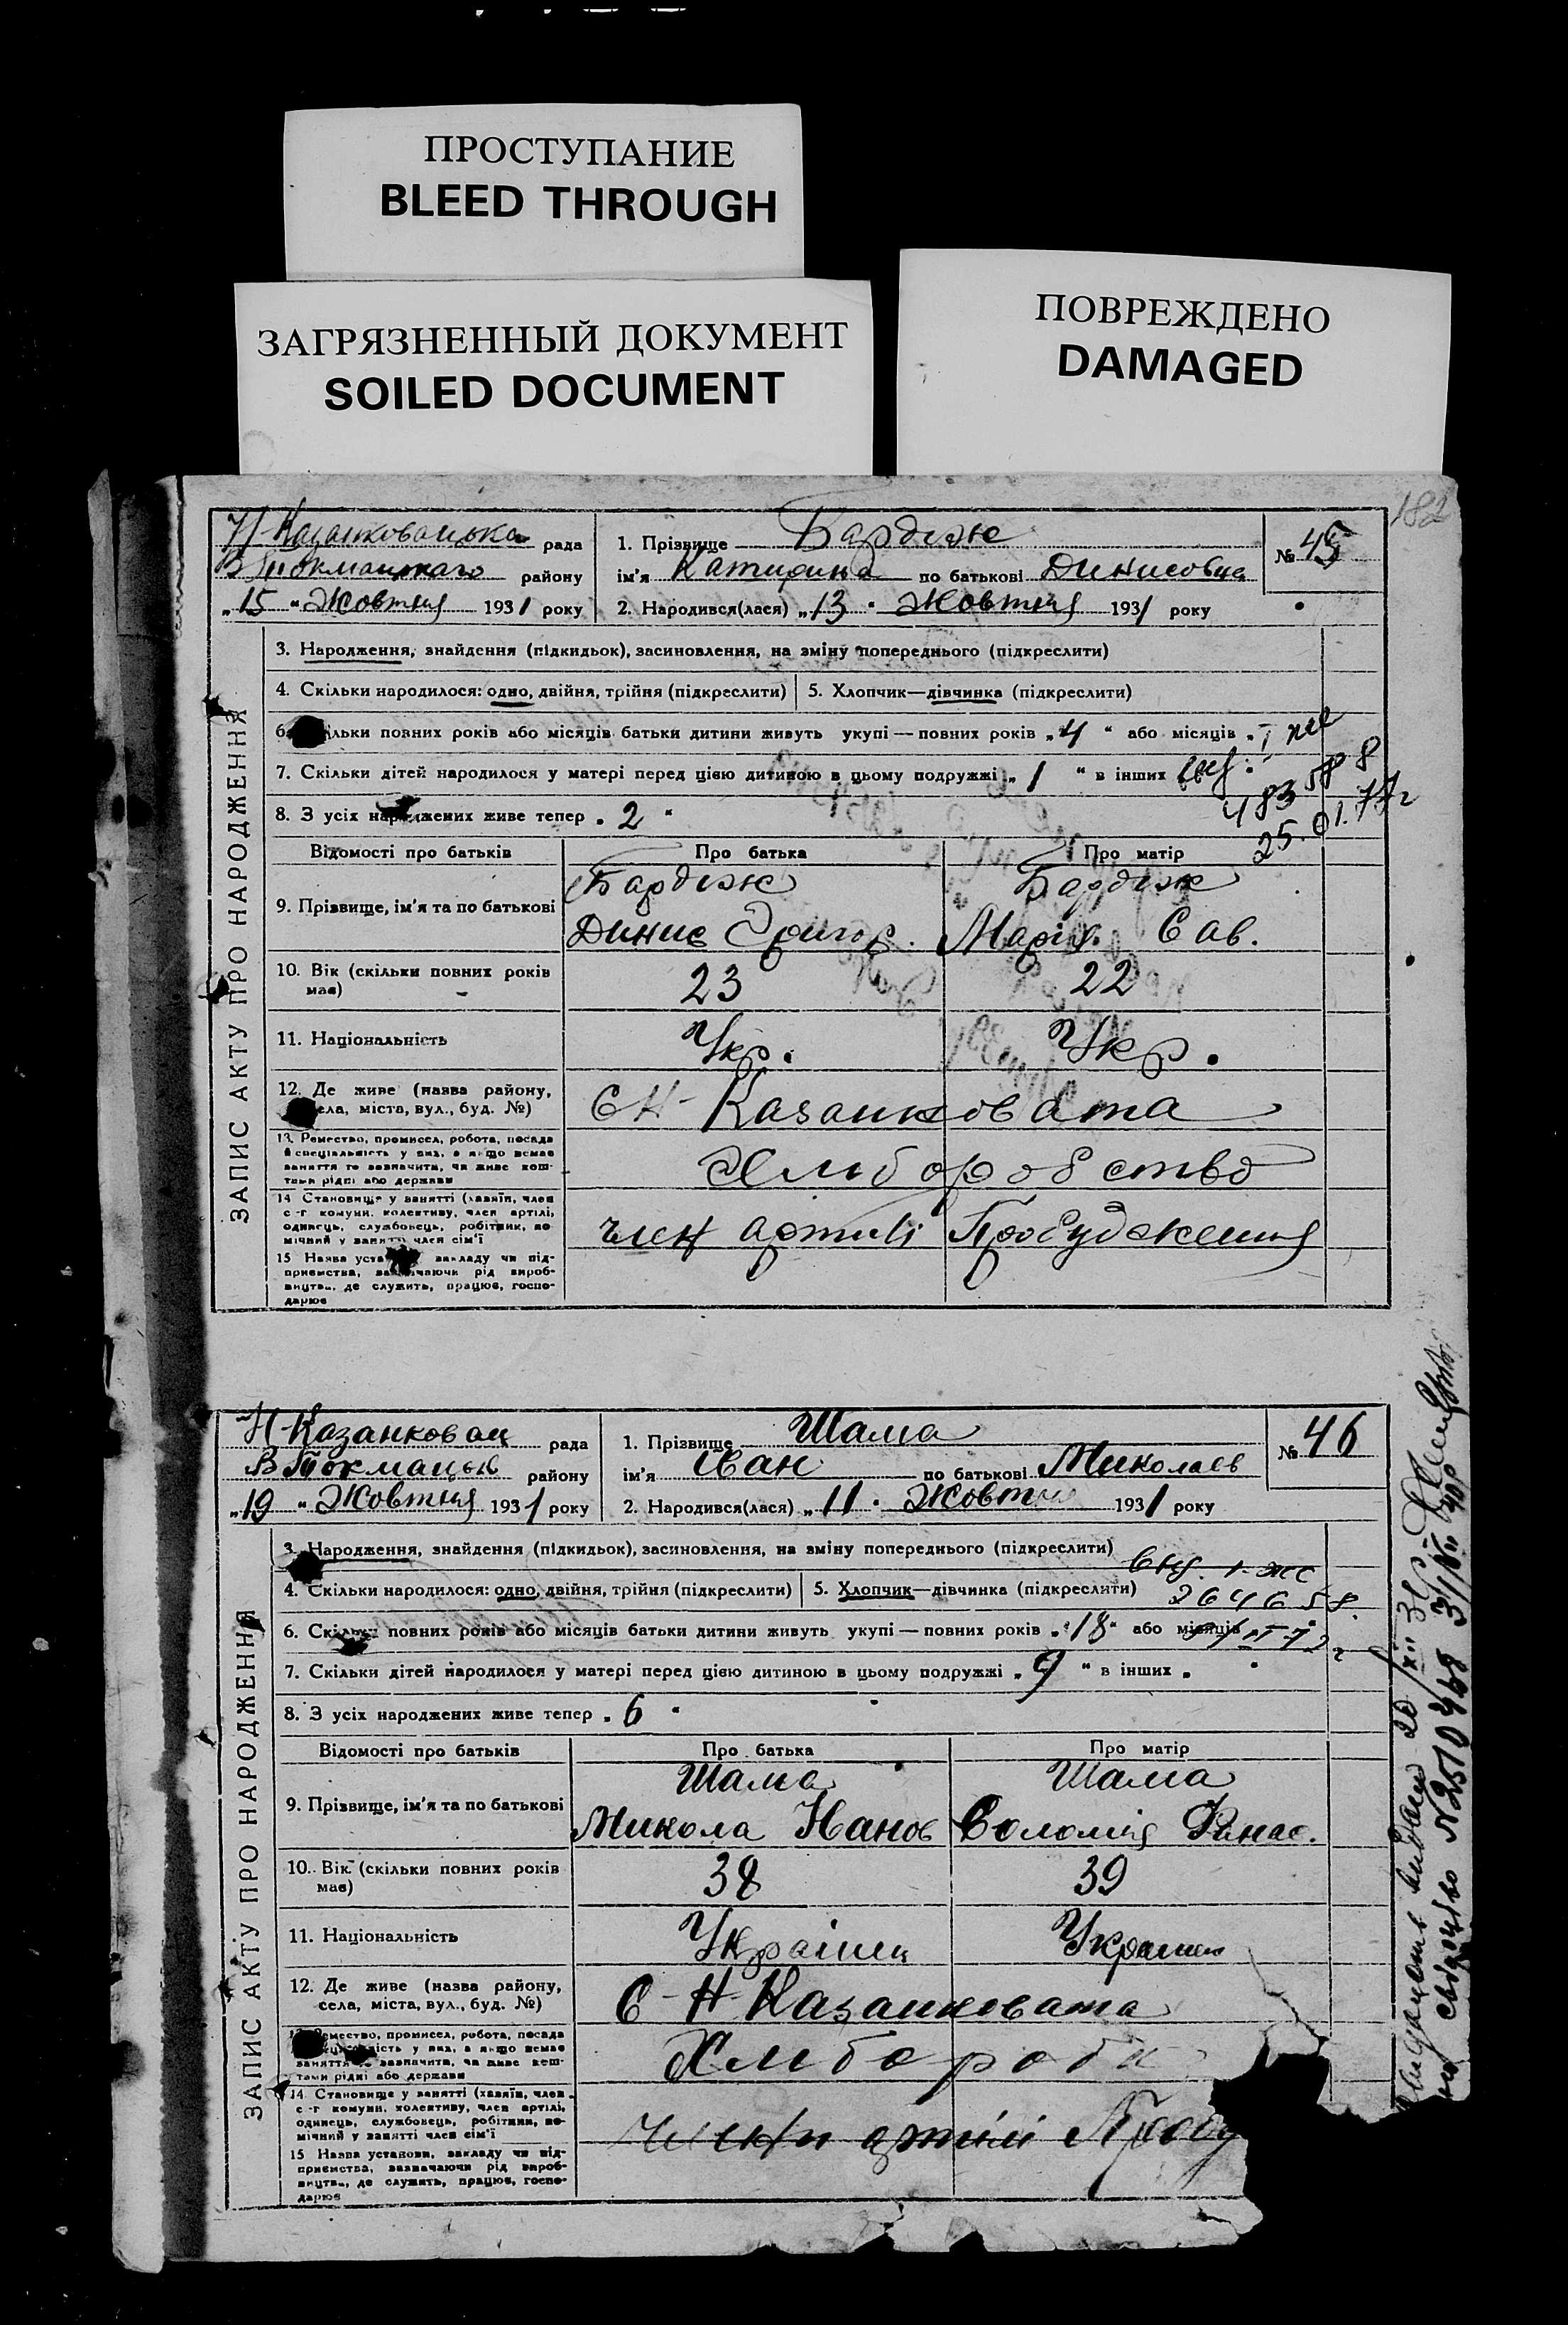 ПРОСТУПАНИЕ
BLEED THROUGH
ЗАГРЯЗНЕННЫЙ ДОКУМЕНТ
SOILED DOCUMENT
ПОВРЕЖДЕНО
DAMAGED
182
ЗАПИС АКТУ ПРО НАРОДЖЕННЯ
Н-Казанковацька рада
В Токмацького району
„15" Жовтня 1931 року
1. Прізвище Бардіж
ім'я Катирина по батькові Динисовна
№ 45
2. Народився(лася) „13" Жовтня 1931 року
3. Народження, знайдення (підкидьок), засиновлення, на зміну попереднього (підкреслити)
4. Скільки народилося: одно, двійня, трійня (підкреслити) 5. Хлопчик—дівчинка (підкреслити)
6. Скільки повних років або місяців батьки дитини живуть укупі — повних років „4" або місяців
7. Скільки дітей народилося у матері перед цією дитиною в цьому подружжі „1" в інших
483588
25.01.77г
8. З усіх народжених живе тепер „2"
Відомості про батьків Про батька Про матір
9. Прізвище, ім'я та по батькові
Бардіж Бардіж
Динис Григор. Марія Сав.
10. Вік (скільки повних років має) 23 22
11. Національність Укр. Укр.
12. Де живе (назва району, села, міста, вул., буд. №) С Н-Казанковата
13. Ремество, промисел, робота, посада й спеціальність у них, а якщо немає заняття то зазначити, чи живе коштами рідні або держави
Хліборобство
14. Становище у занятті (хазяїн, член с-г комуни, колективу, член артілі, одинець, службовець, робітник, помічний у занятті член сім'ї
член артилі Пробудження
15. Назва установи, закладу чи підприємства, зазначаючи рід виробництва, де служить, працює, господарює
ЗАПИС АКТУ ПРО НАРОДЖЕННЯ
Н-Казанковац рада
В Токмацьк району
„19" Жовтня 1931 року
1. Прізвище Шама
ім'я Іван по батькові Миколаєв
№ 46
2. Народився(лася) „11" Жовтня 1931 року
3. Народження, знайдення (підкидьок), засиновлення, на зміну попереднього (підкреслити)
4. Скільки народилося: одно, двійня, трійня (підкреслити) 5. Хлопчик—дівчинка (підкреслити)
264658
6. Скільки повних років або місяців батьки дитини живуть укупі — повних років „18" або місяців
7. Скільки дітей народилося у матері перед цією дитиною в цьому подружжі „9" в інших „ "
8. З усіх народжених живе тепер „6"
Відомості про батьків Про батька Про матір
9. Прізвище, ім'я та по батькові
Шама Шама
Микола Іванов Соломія Фанас.
10. Вік (скільки повних років має) 38 39
11. Національність Українц Україн
12. Де живе (назва району, села, міста, вул., буд. №) С-Н-Казанковата
13. Ремество, промисел, робота, посада й спеціальність у них, а якщо немає заняття то зазначити, чи живе коштами рідні або держави
Хлібороби
14. Становище у занятті (хазяїн, член с-г комуни, колективу, член артілі, одинець, службовець, робітник, помічний у занятті член сім'ї
члени артілі Пробу
15. Назва установи, закладу чи підприємства, зазначаючи рід виробництва, де служить, працює, господарює